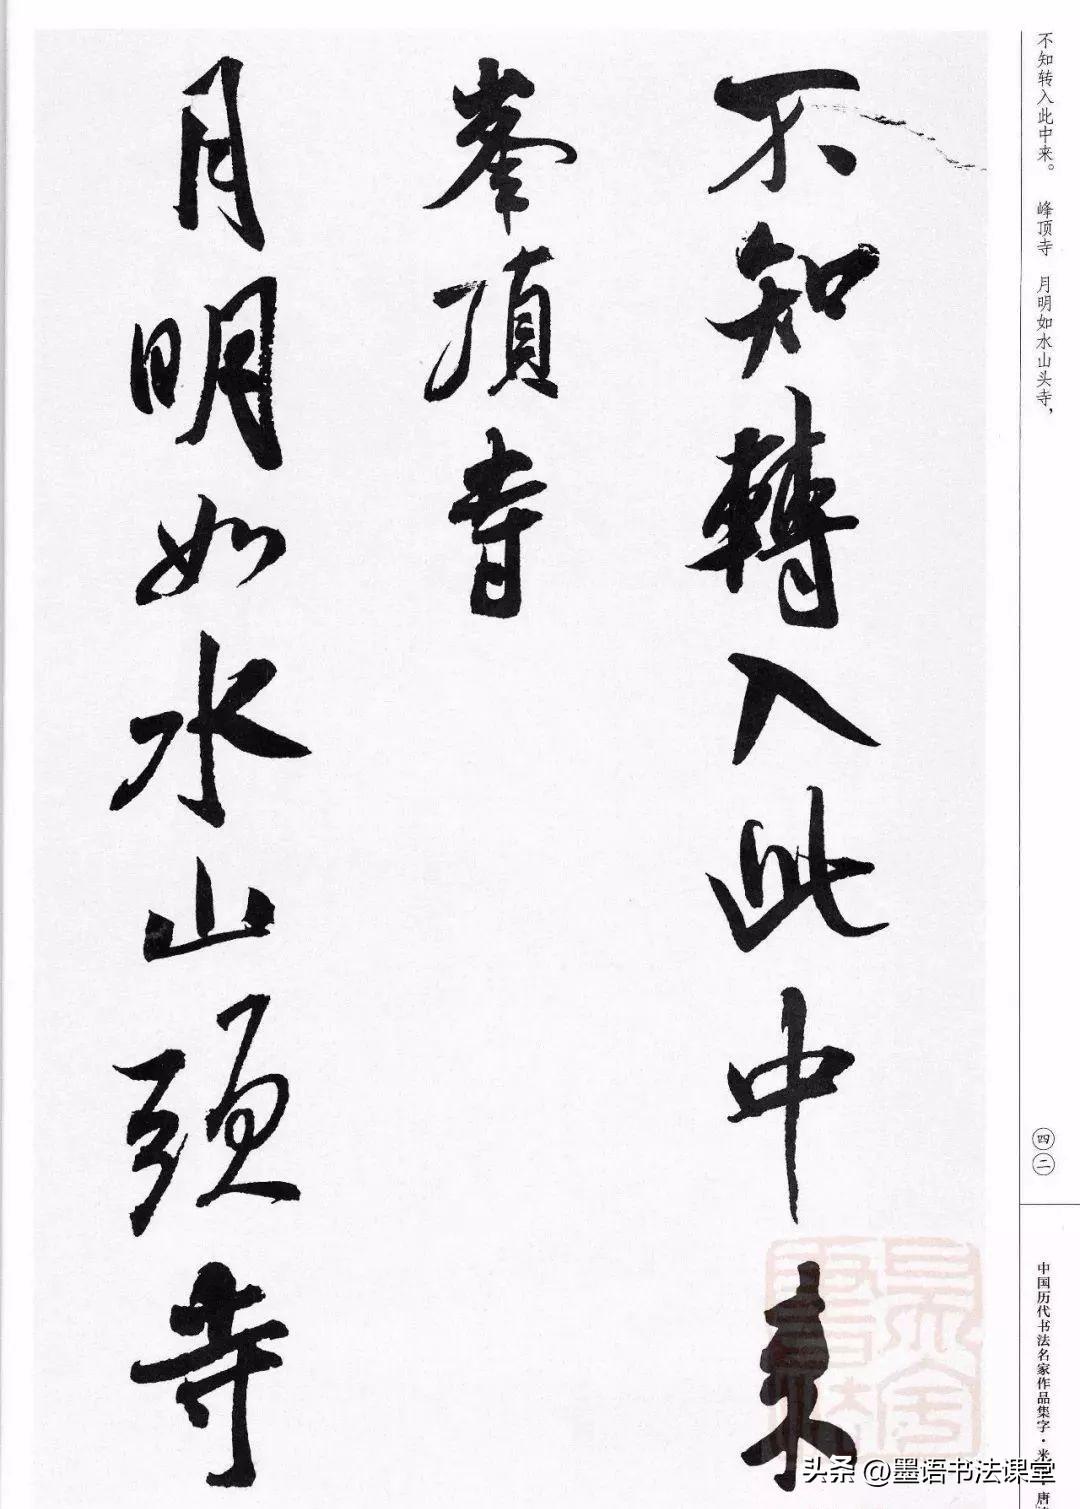 不知转入此中来。　峰顶寺　月明如水山头寺，
四二
中国历代书法名家作品集字·米
唐
不知轉入此中来
峯頂寺
月明如水山頭寺
头条 @墨语书法课堂